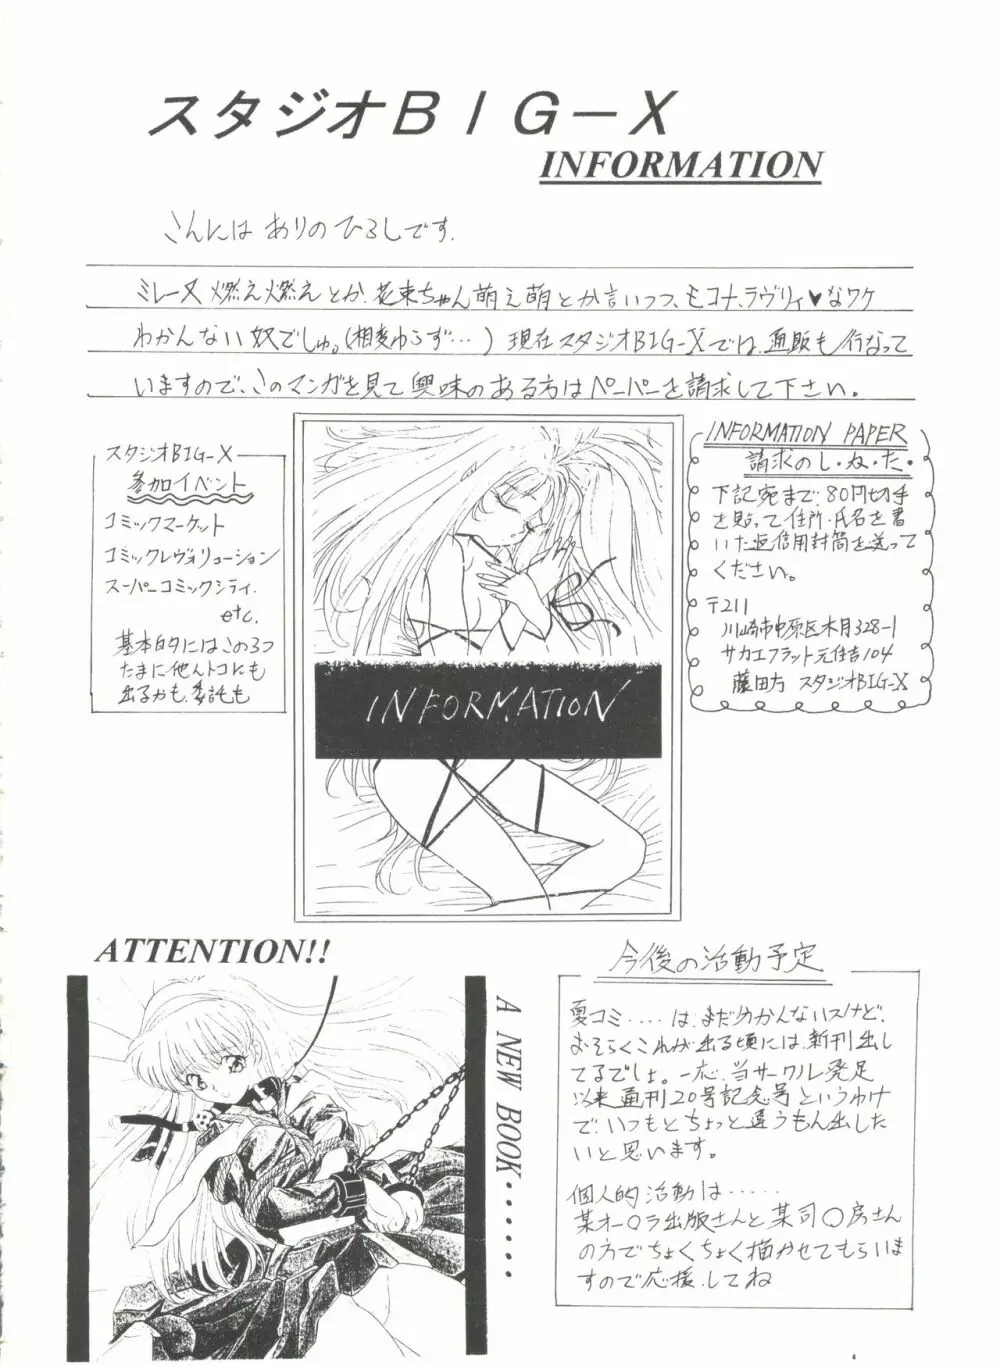 スタジオBIG-X
INFORMATION
こんにちは ありのひろしです.
ミレーヌ燃え燃えとか、花束ちゃん萌え萌とか言いつつ、モコナ、ラヴリィ♥なワケ
わかんない奴でしゅ。(相変わらず…) 現在スタジオBIG-Xでは、通販も行なって
いますので、このマンガを見て興味のある方はペーパーを請求して下さい。
スタジオBIG-X
参加イベント
コミックマーケット
コミックレヴォリューション
スーパーコミックシティ.
etc.
基本的にはこの3つ
たまに他んトコにも
出るかも、委託も
INFORMATION PAPER
請求のし・ね・た・
下記宛まで80円切手
を貼って住所・氏名を書
いた返信用封筒を送って
ください。
〒211
川崎市中原区木月328-1
サカエフラット元住吉104
藤田方 スタジオBIG-X
INFORMATION
ATTENTION!!
A NEW BOOK......
今後の活動予定
夏コミ....は、まだ分かんないスけど、
おそらくこれが出る頃には、新刊出し
てるでしょ。一応、当サークル発足
以来通刊20号記念号というわけ
で、いつもとちょっと違うもん出した
いと思います。
個人的活動は......
某オー○ラ出版さんと某司○房さん
の方でちょくちょく描かせてもらいま
すので応援.してね